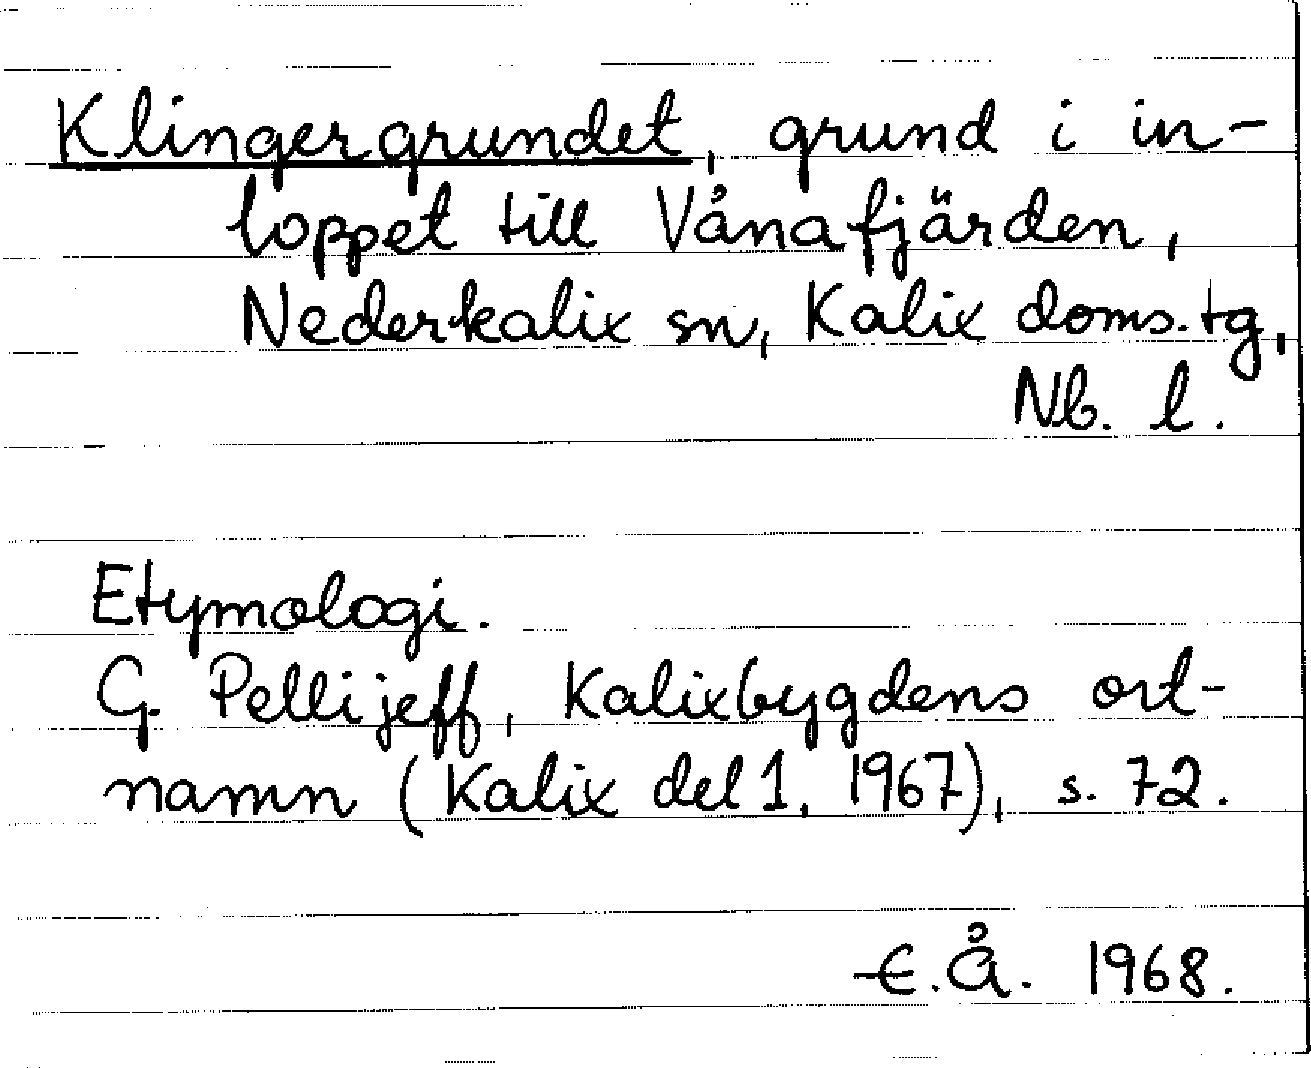 Klingergrundet, grund i in-
loppet till Vånafjärden,
Nederkalix sn, Kalix doms.tg,
Nb. l.
Etymologi.
G. Pellijeff, Kalixbygdens ort-
namn (Kalix del 1, 1967), s. 72.
E.Å. 1968.